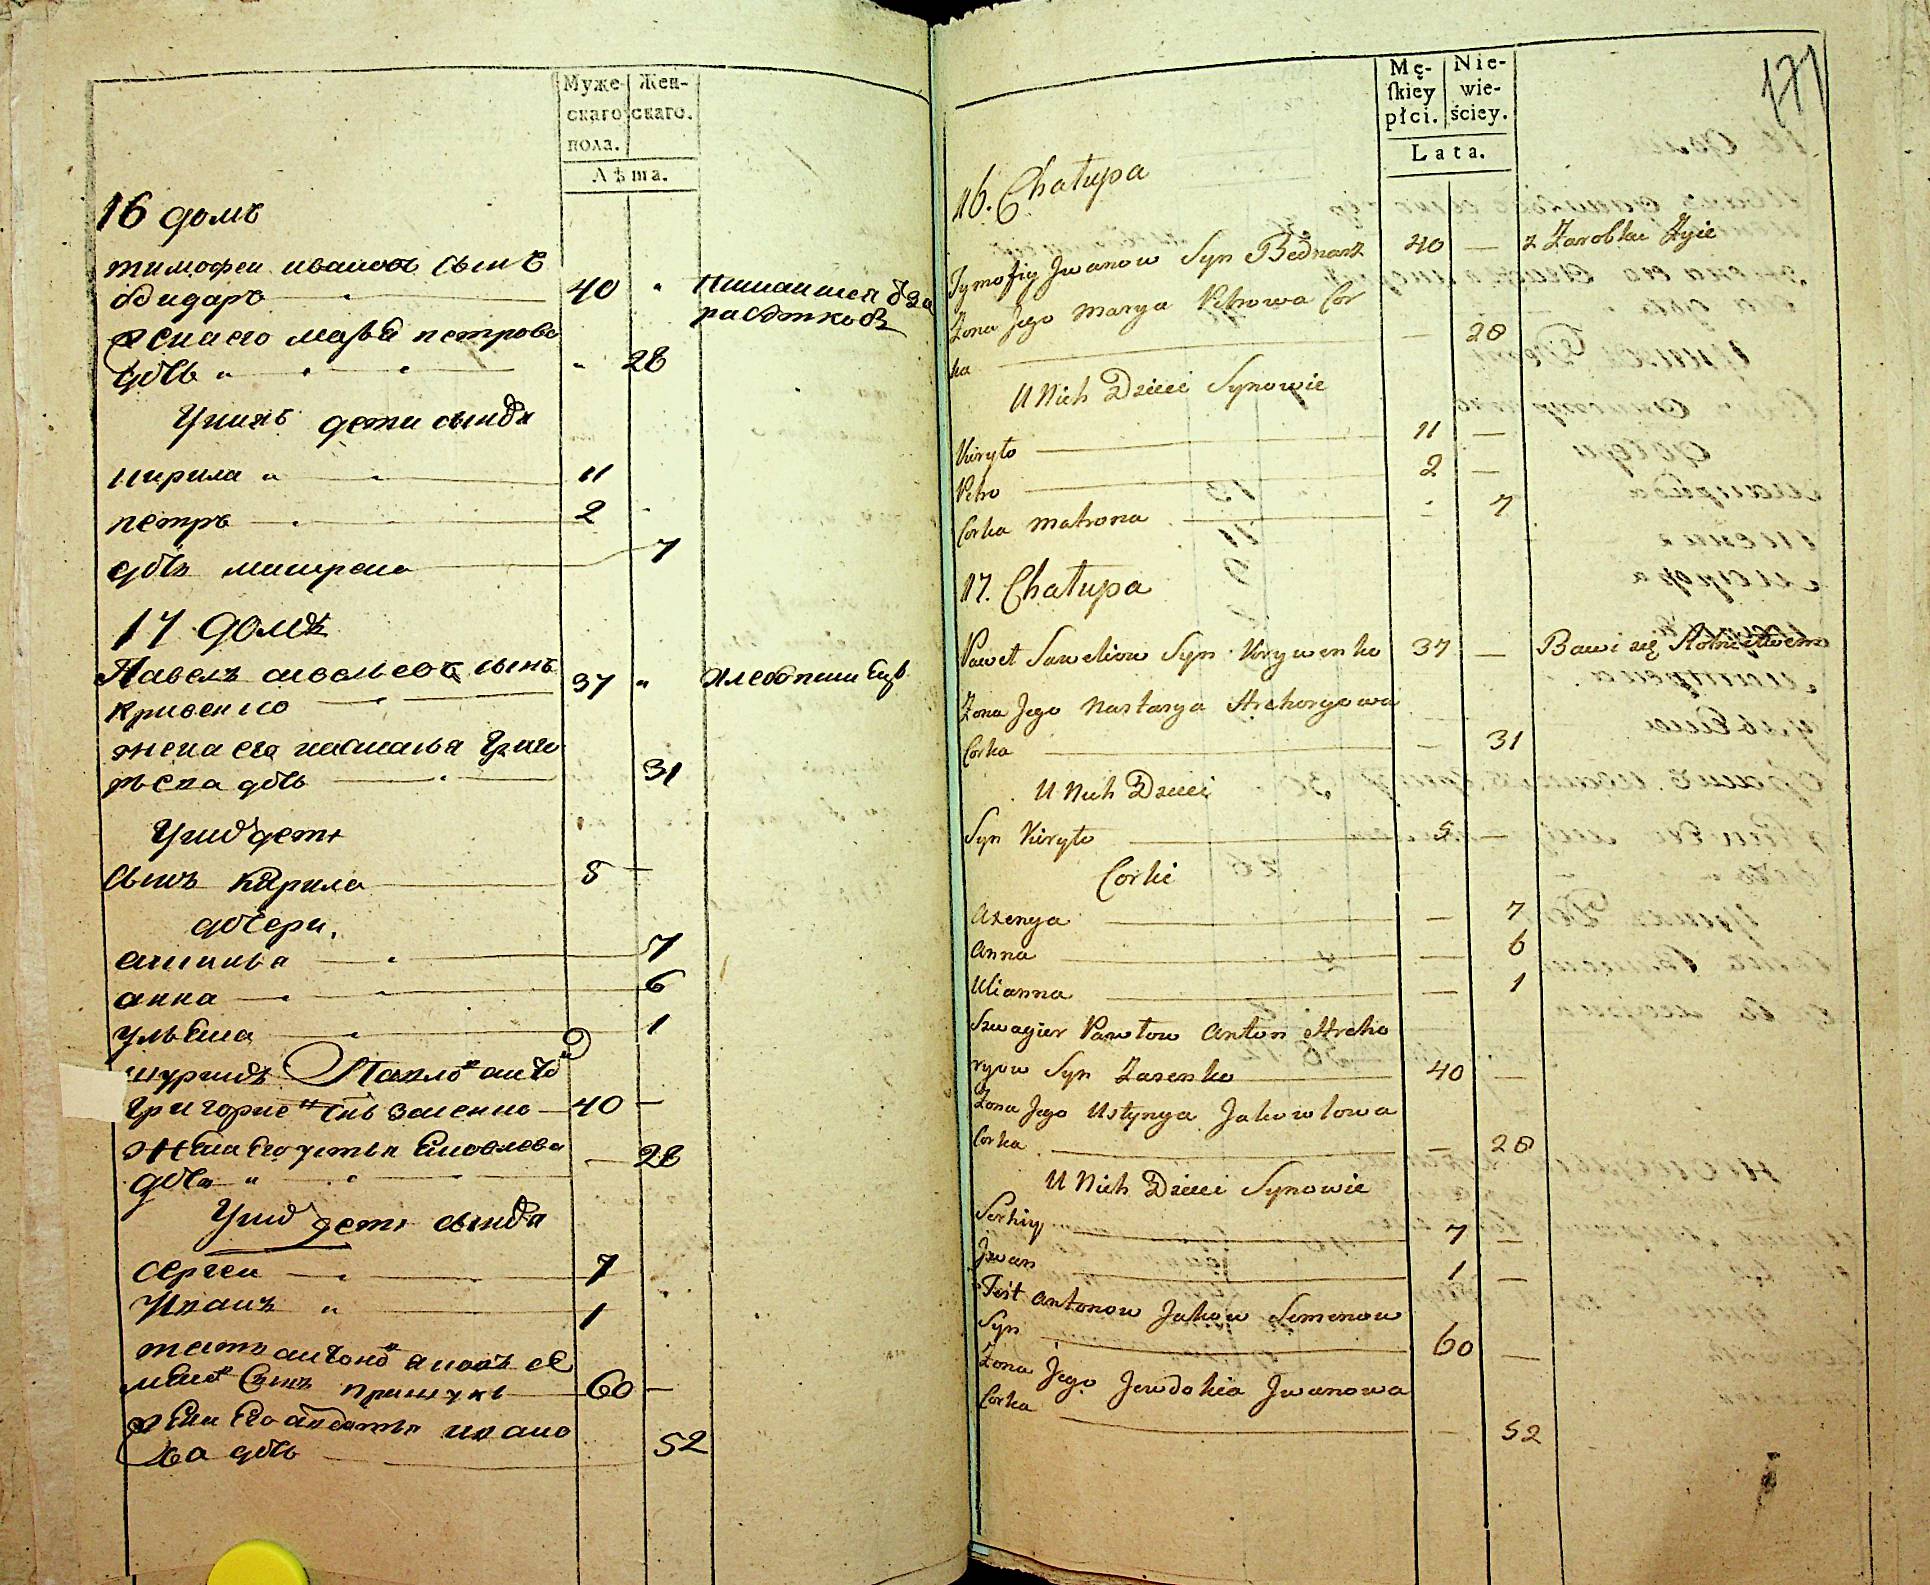 Муже- Жен-
скаго скаго.
пола.
Лѣта.
16 домъ
тимофеи ивановъ сынъ
бодндаръ 40
жена его марья петрова
дочь 28
У нихъ дети сыновя
Кирила 11
петръ 2
дочь матрена 7
17 домъ
Павелъ савельевъ сынъ
кривенко 37 хлебопашецъ
жена его настасья григо
рьева дочь 31
У них дети
сынъ кирила 5
дочери,
аксинья 7
анна 6
ульяна 1
шуринъ Павловъ антонъ
григориевъ снъ засенко 40
жена его устинья яковлева
дочь 28
У них дети сыновя
сергеи 7
Иванъ 1
тесть антоновъ яковъ се
меновъ сынъ 60
жена его авдотья ивано
ва дочь 52
177
Mę- Nie-
skiey wie-
płci. ściey.
Lata.
16. Chałupa
Tymofiy Jwanow Syn Bednarz 40 — z Zarobku Żyie
Żona Jego Marya Petrowa Cor
ka — 28
U Nich Dzieci Synowie
Kiryło 11 —
Petro 2 —
Corka Matrona 7
17. Chałupa
Paweł Saweliow Syn Krywenko 37 — Bawi się Rolnictwem
Żona Jego Nastasya Hrehoryowa
Corka — 31
U Nich Dzieci
Syn Kiryło 5 —
Corki
Axenya — 7
Anna — 6
Ulianna — 1
Szwagier Pawłow Anton Hreho
ryow Syn Zasenko 40 —
Żona Jego Ustynya Jakowlowa
Corka — 28
U Nich Dzieci Synowie
Serhiy 7 —
Jwan 1 —
Teść Antonow Jakow Semenow
Syn 60 —
Żona Jego Jewdokia Jwanowa
Corka — 52